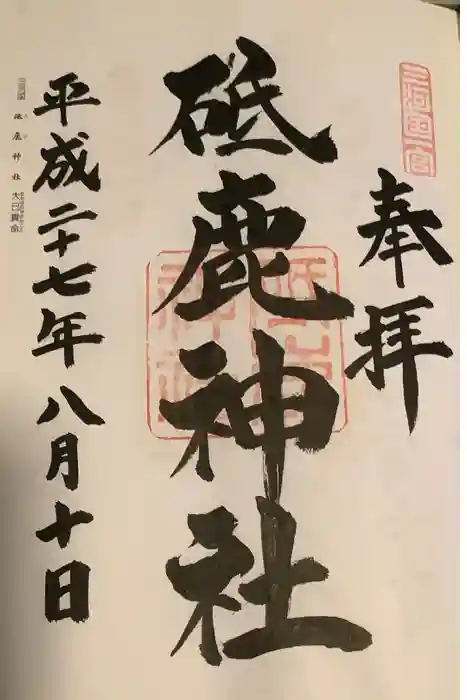 三河国一宮
奉拝
砥鹿神社
砥鹿神社
平成二十七年八月十日
三河國 砥鹿神社 大己貴命